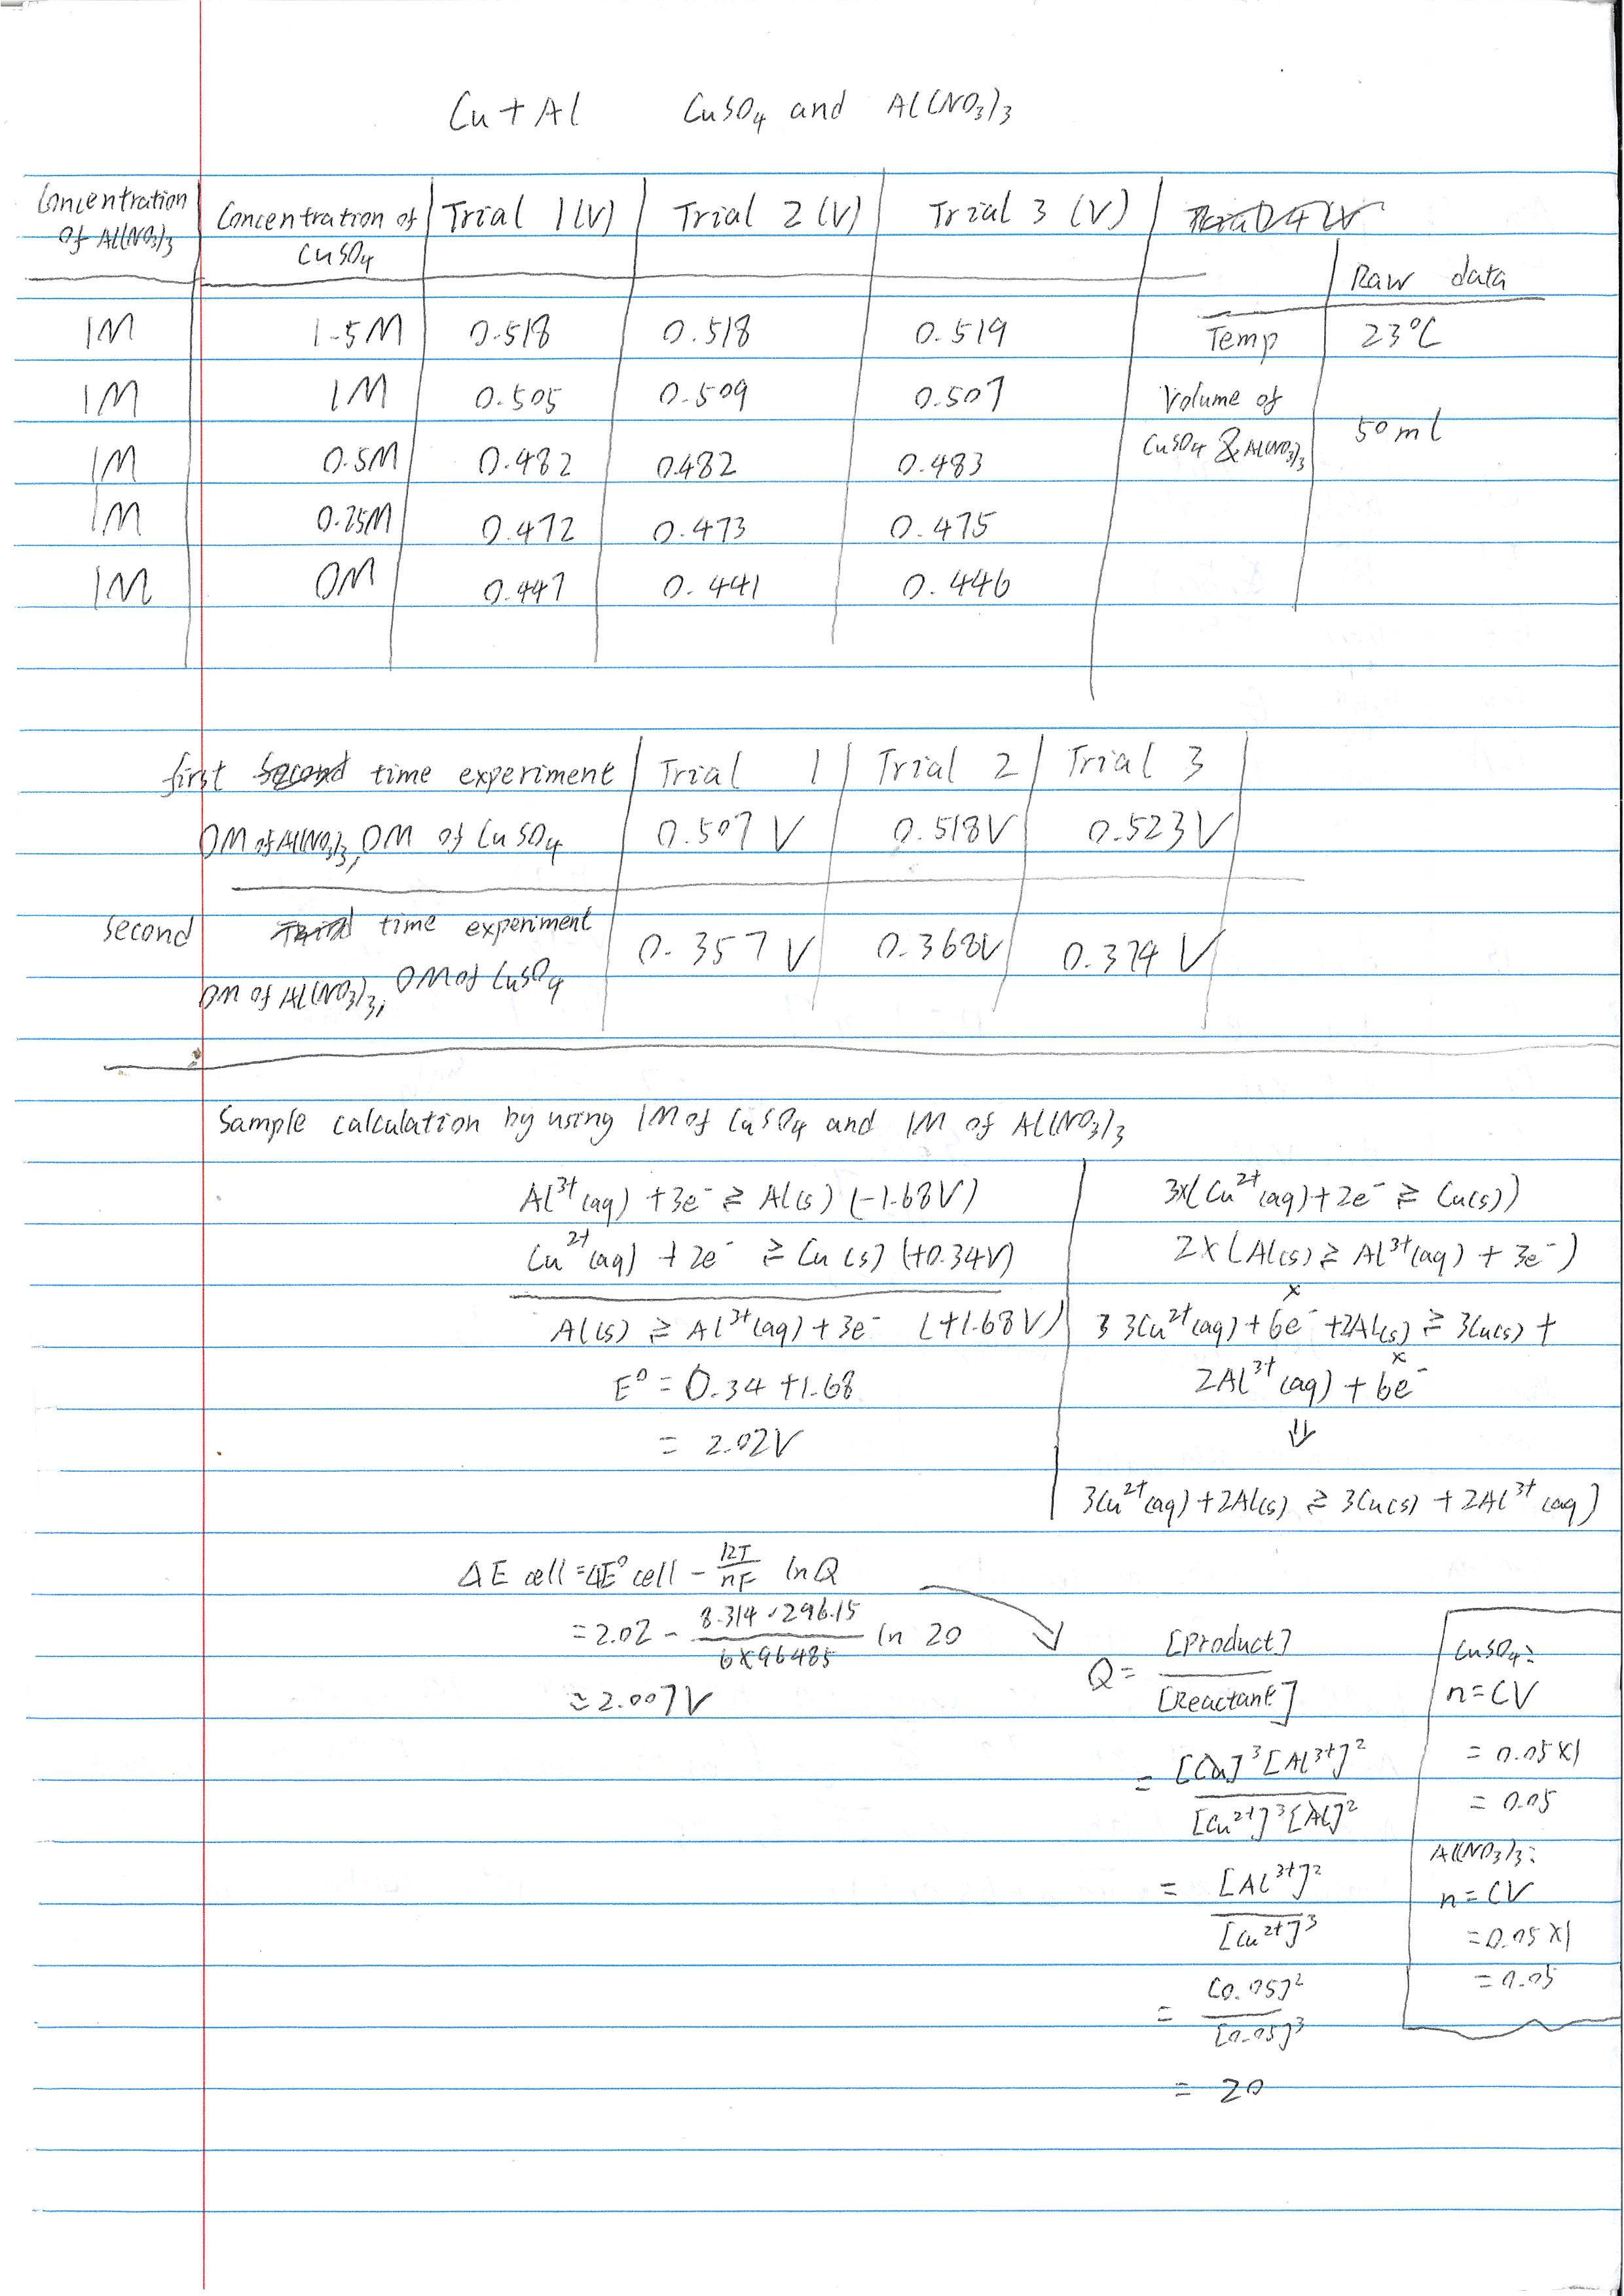 Cu + Al CuSO₄ and Al(NO₃)₃
Concentration of Al(NO₃)₃ | Concentration of CuSO₄ | Trial 1 (V) | Trial 2 (V) | Trial 3 (V)
Raw data
1M 1.5M 0.518 0.518 0.519 Temp 23°C
1M 1M 0.505 0.509 0.507 Volume of
1M 0.5M 0.482 0.482 0.483 CuSO₄ & Al(NO₃)₃ 50ml
1M 0.25M 0.472 0.473 0.475
1M 0M 0.447 0.441 0.446
first time experiment | Trial 1 | Trial 2 | Trial 3
0M of Al(NO₃)₃, 0M of CuSO₄ 0.507 V 0.518V 0.523V
second time experiment
0M of Al(NO₃)₃, 0M of CuSO₄ 0.357 V 0.368V 0.374 V
Sample calculation by using 1M of CuSO₄ and 1M of Al(NO₃)₃
Al³⁺(aq) + 3e⁻ ⇄ Al(s) (-1.68V)
Cu²⁺(aq) + 2e⁻ ⇄ Cu(s) (+0.34V)
Al(s) ⇄ Al³⁺(aq) + 3e⁻ (+1.68V)
E⁰ = 0.34 + 1.68
= 2.02V
3x(Cu²⁺(aq) + 2e⁻ ⇄ Cu(s))
2x(Al(s) ⇄ Al³⁺(aq) + 3e⁻)
3 3Cu²⁺(aq) + 6e⁻ + 2Al(s) ⇄ 3Cu(s) +
2Al³⁺(aq) + 6e⁻
⇓
3Cu²⁺(aq) + 2Al(s) ⇄ 3Cu(s) + 2Al³⁺(aq)
ΔE cell = ΔE⁰ cell - RT/nF ln Q
= 2.02 - (8.314 · 296.15)/(6 × 96485) ln 20
= 2.007V
Q = [Product]/[Reactant]
= [Cu]³[Al³⁺]²/[Cu²⁺]³[Al]²
= [Al³⁺]²/[Cu²⁺]³
= [0.05]²/[0.05]³
= 20
CuSO₄:
n = CV
= 0.05 × 1
= 0.05
Al(NO₃)₃:
n = CV
= 0.05 × 1
= 0.05